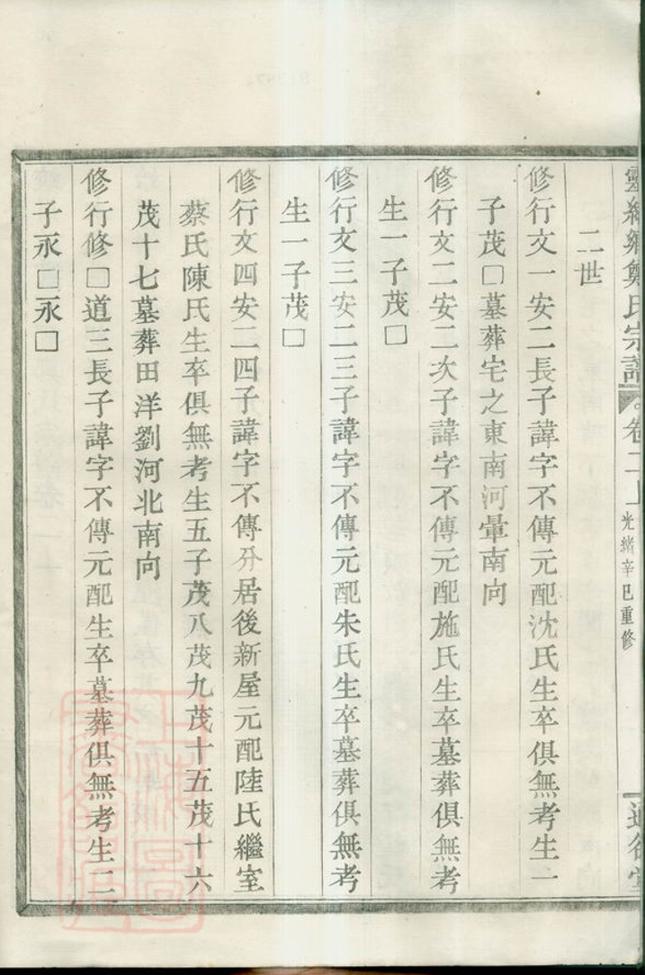 鄭氏宗譜 卷二上 光緒辛巳重修
二世
修行文一安二長子諱字不傳元配沈氏生卒俱無考生一
子茂□墓葬宅之東南河暈南向
修行文二安二次子諱字不傳元配施氏生卒墓葬俱無考
生一子茂□
修行文三安二三子諱字不傳元配朱氏生卒墓葬俱無考
生一子茂□
修行文四安二四子諱字不傳分居後新屋元配陸氏繼室
蔡氏陳氏生卒俱無考生五子茂八茂九茂十五茂十六
茂十七墓葬田洋劉河北南向
修行修□道三長子諱字不傳元配生卒墓葬俱無考生二
子永□永□